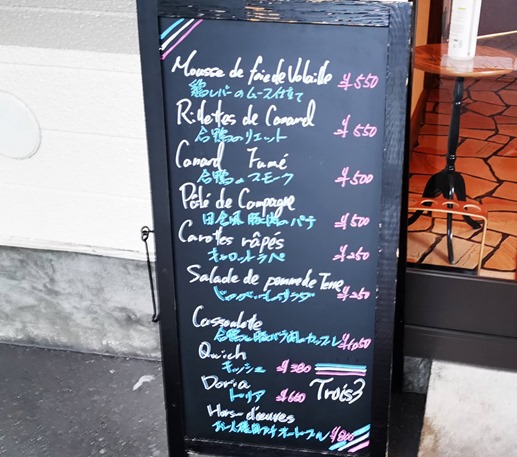 Mousse de foie de Volaille ¥550
鶏レバーのムース仕立て
Rillettes de Canard
合鴨のリエット ¥550
Canard Fumé
合鴨のスモーク ¥500
Pâté de Campagne
田舎風 豚肉のパテ ¥500
Carottes râpés
キャロットラペ ¥250
Salade de pomme de Terre
¥250
Cassoulette
¥1050
Quich
キッシュ ¥380
Doria
ドリア ¥660
Trois3
Hors-d'œuvres
オードブル ¥800